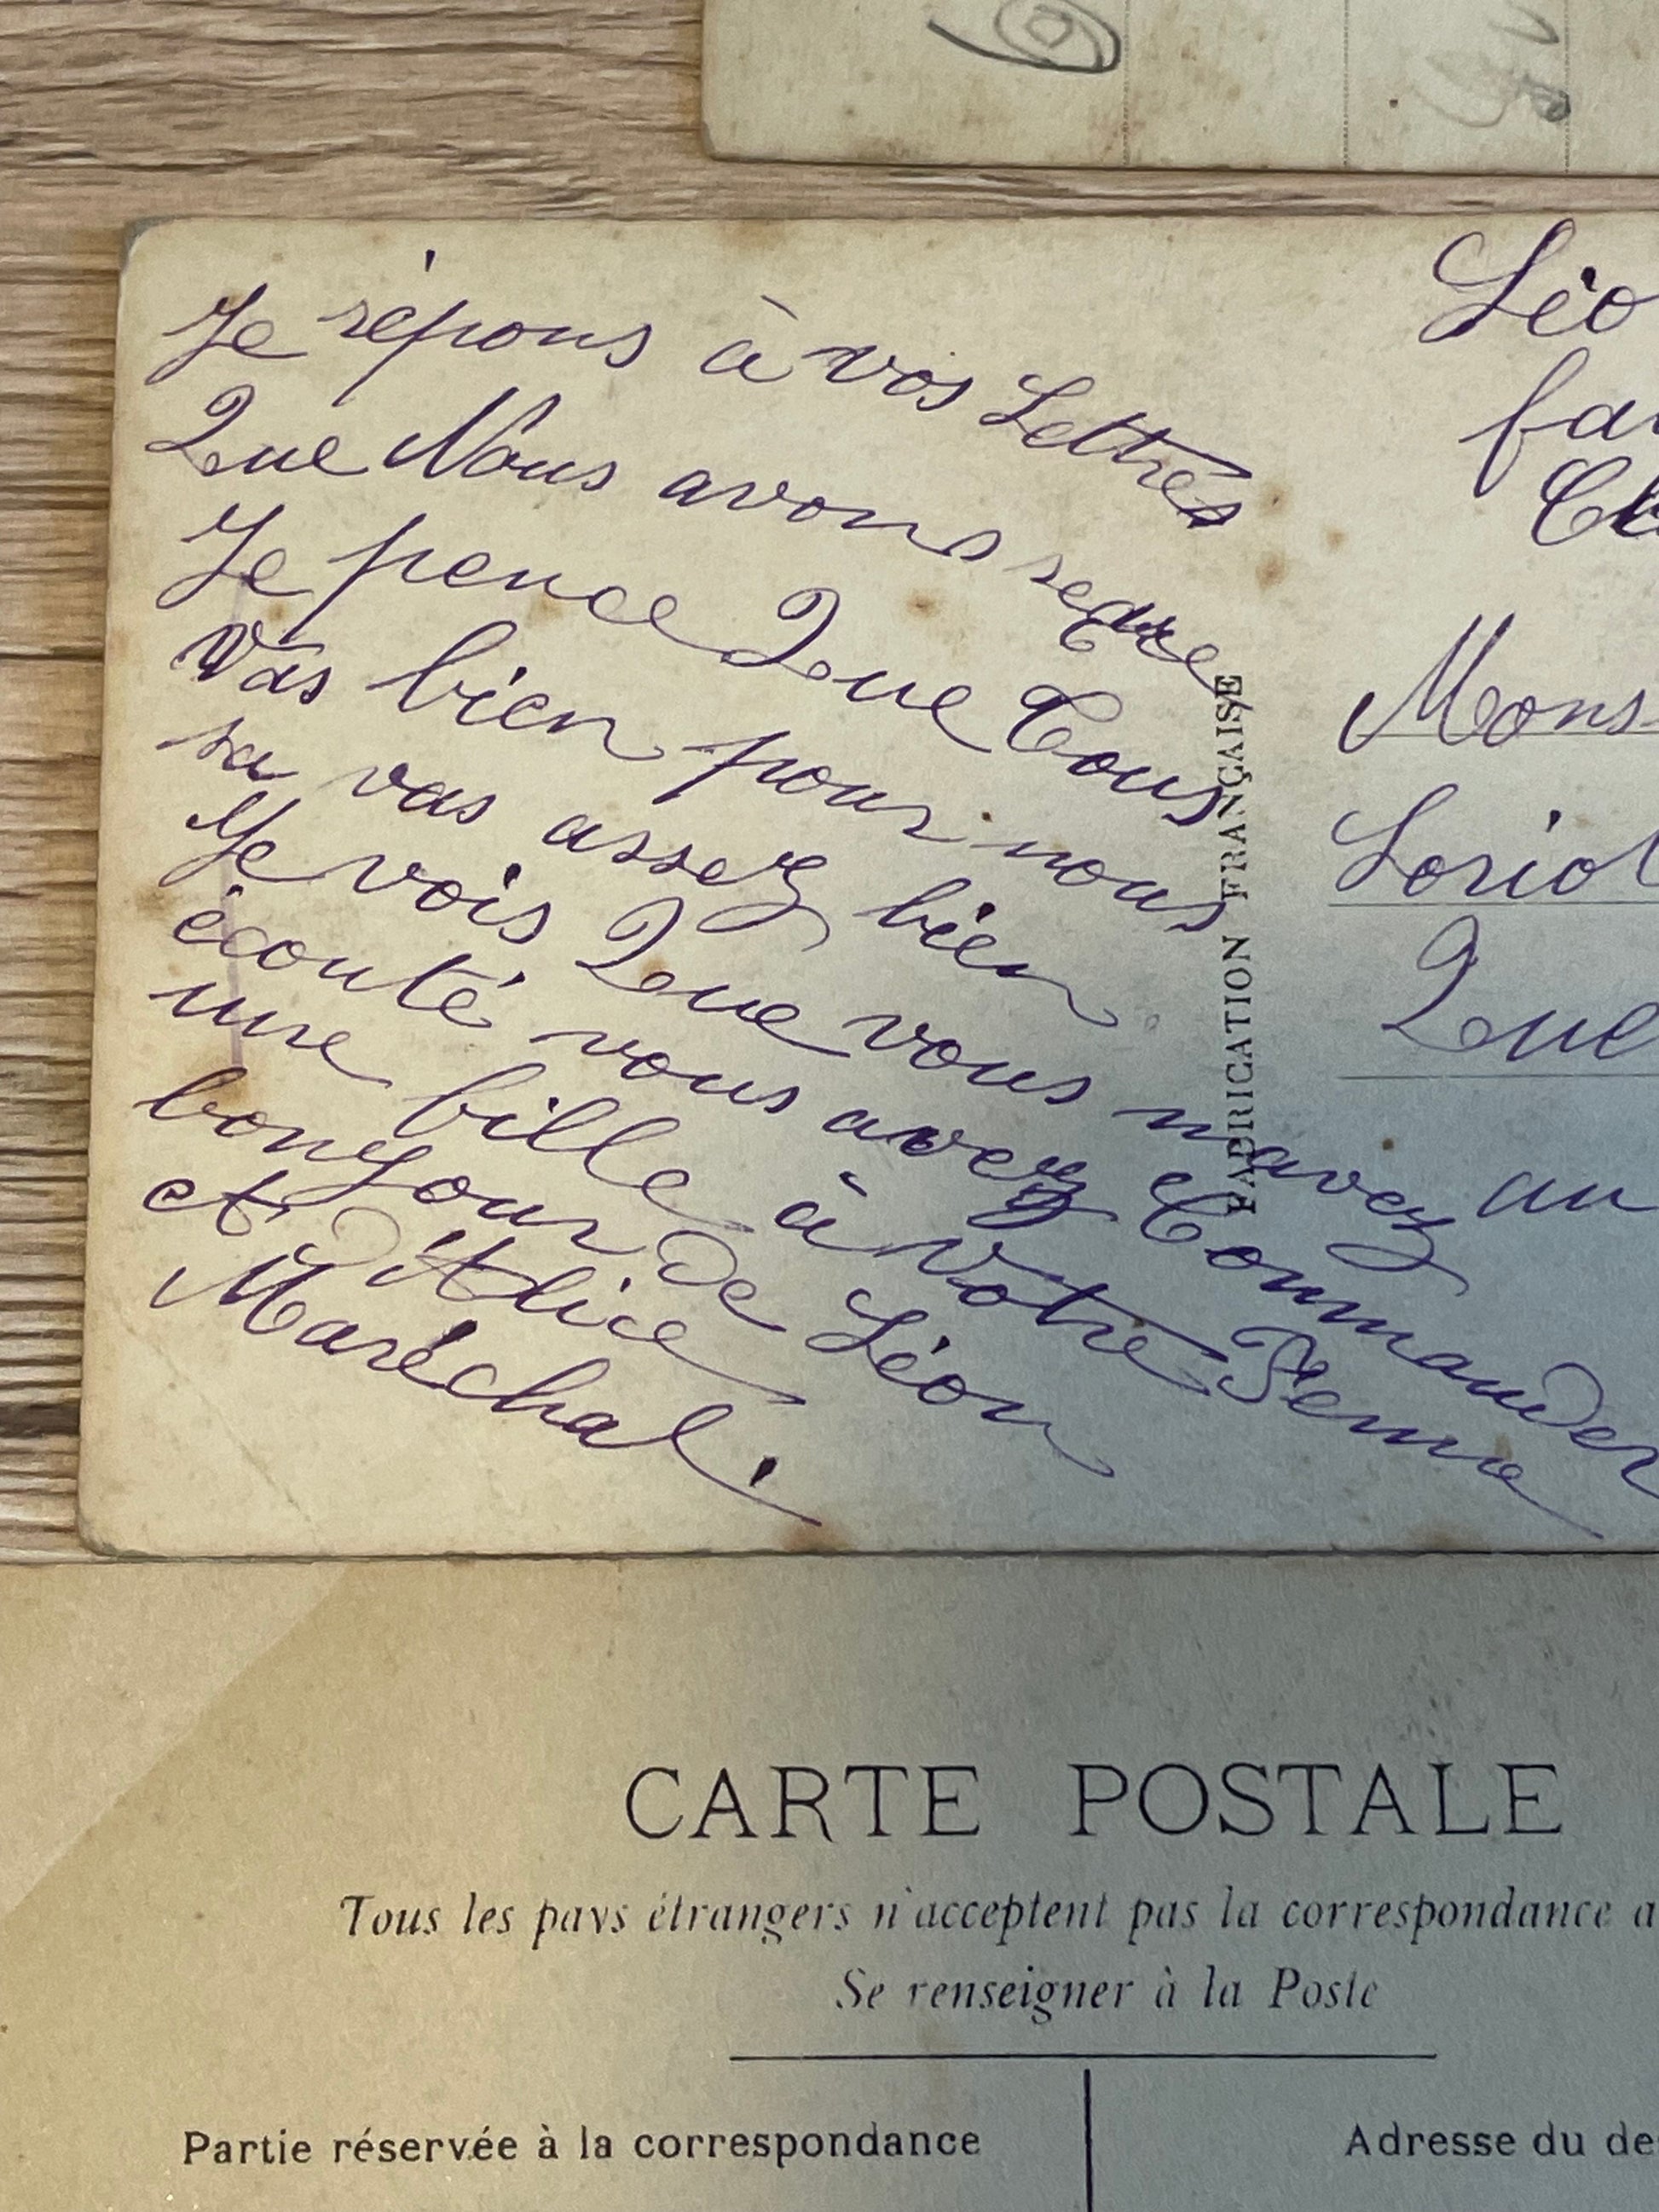 Je répons à vos Lettres
Que Nous avons reçue
Je pence Que Tous
Vas bien pour nous
sa vas assez bien
Je vois Que vous navez au
écouté vous avez Commander
une bille à votre Femme
bonjour de Léon
et d'Alice
Maréchal.
FABRICATION FRANÇAISE
Léo
fa
Mons
Loriol
Que
CARTE POSTALE
Tous les pays étrangers n'acceptent pas la correspondance a
Se renseigner à la Poste
Partie réservée à la correspondance
Adresse du de